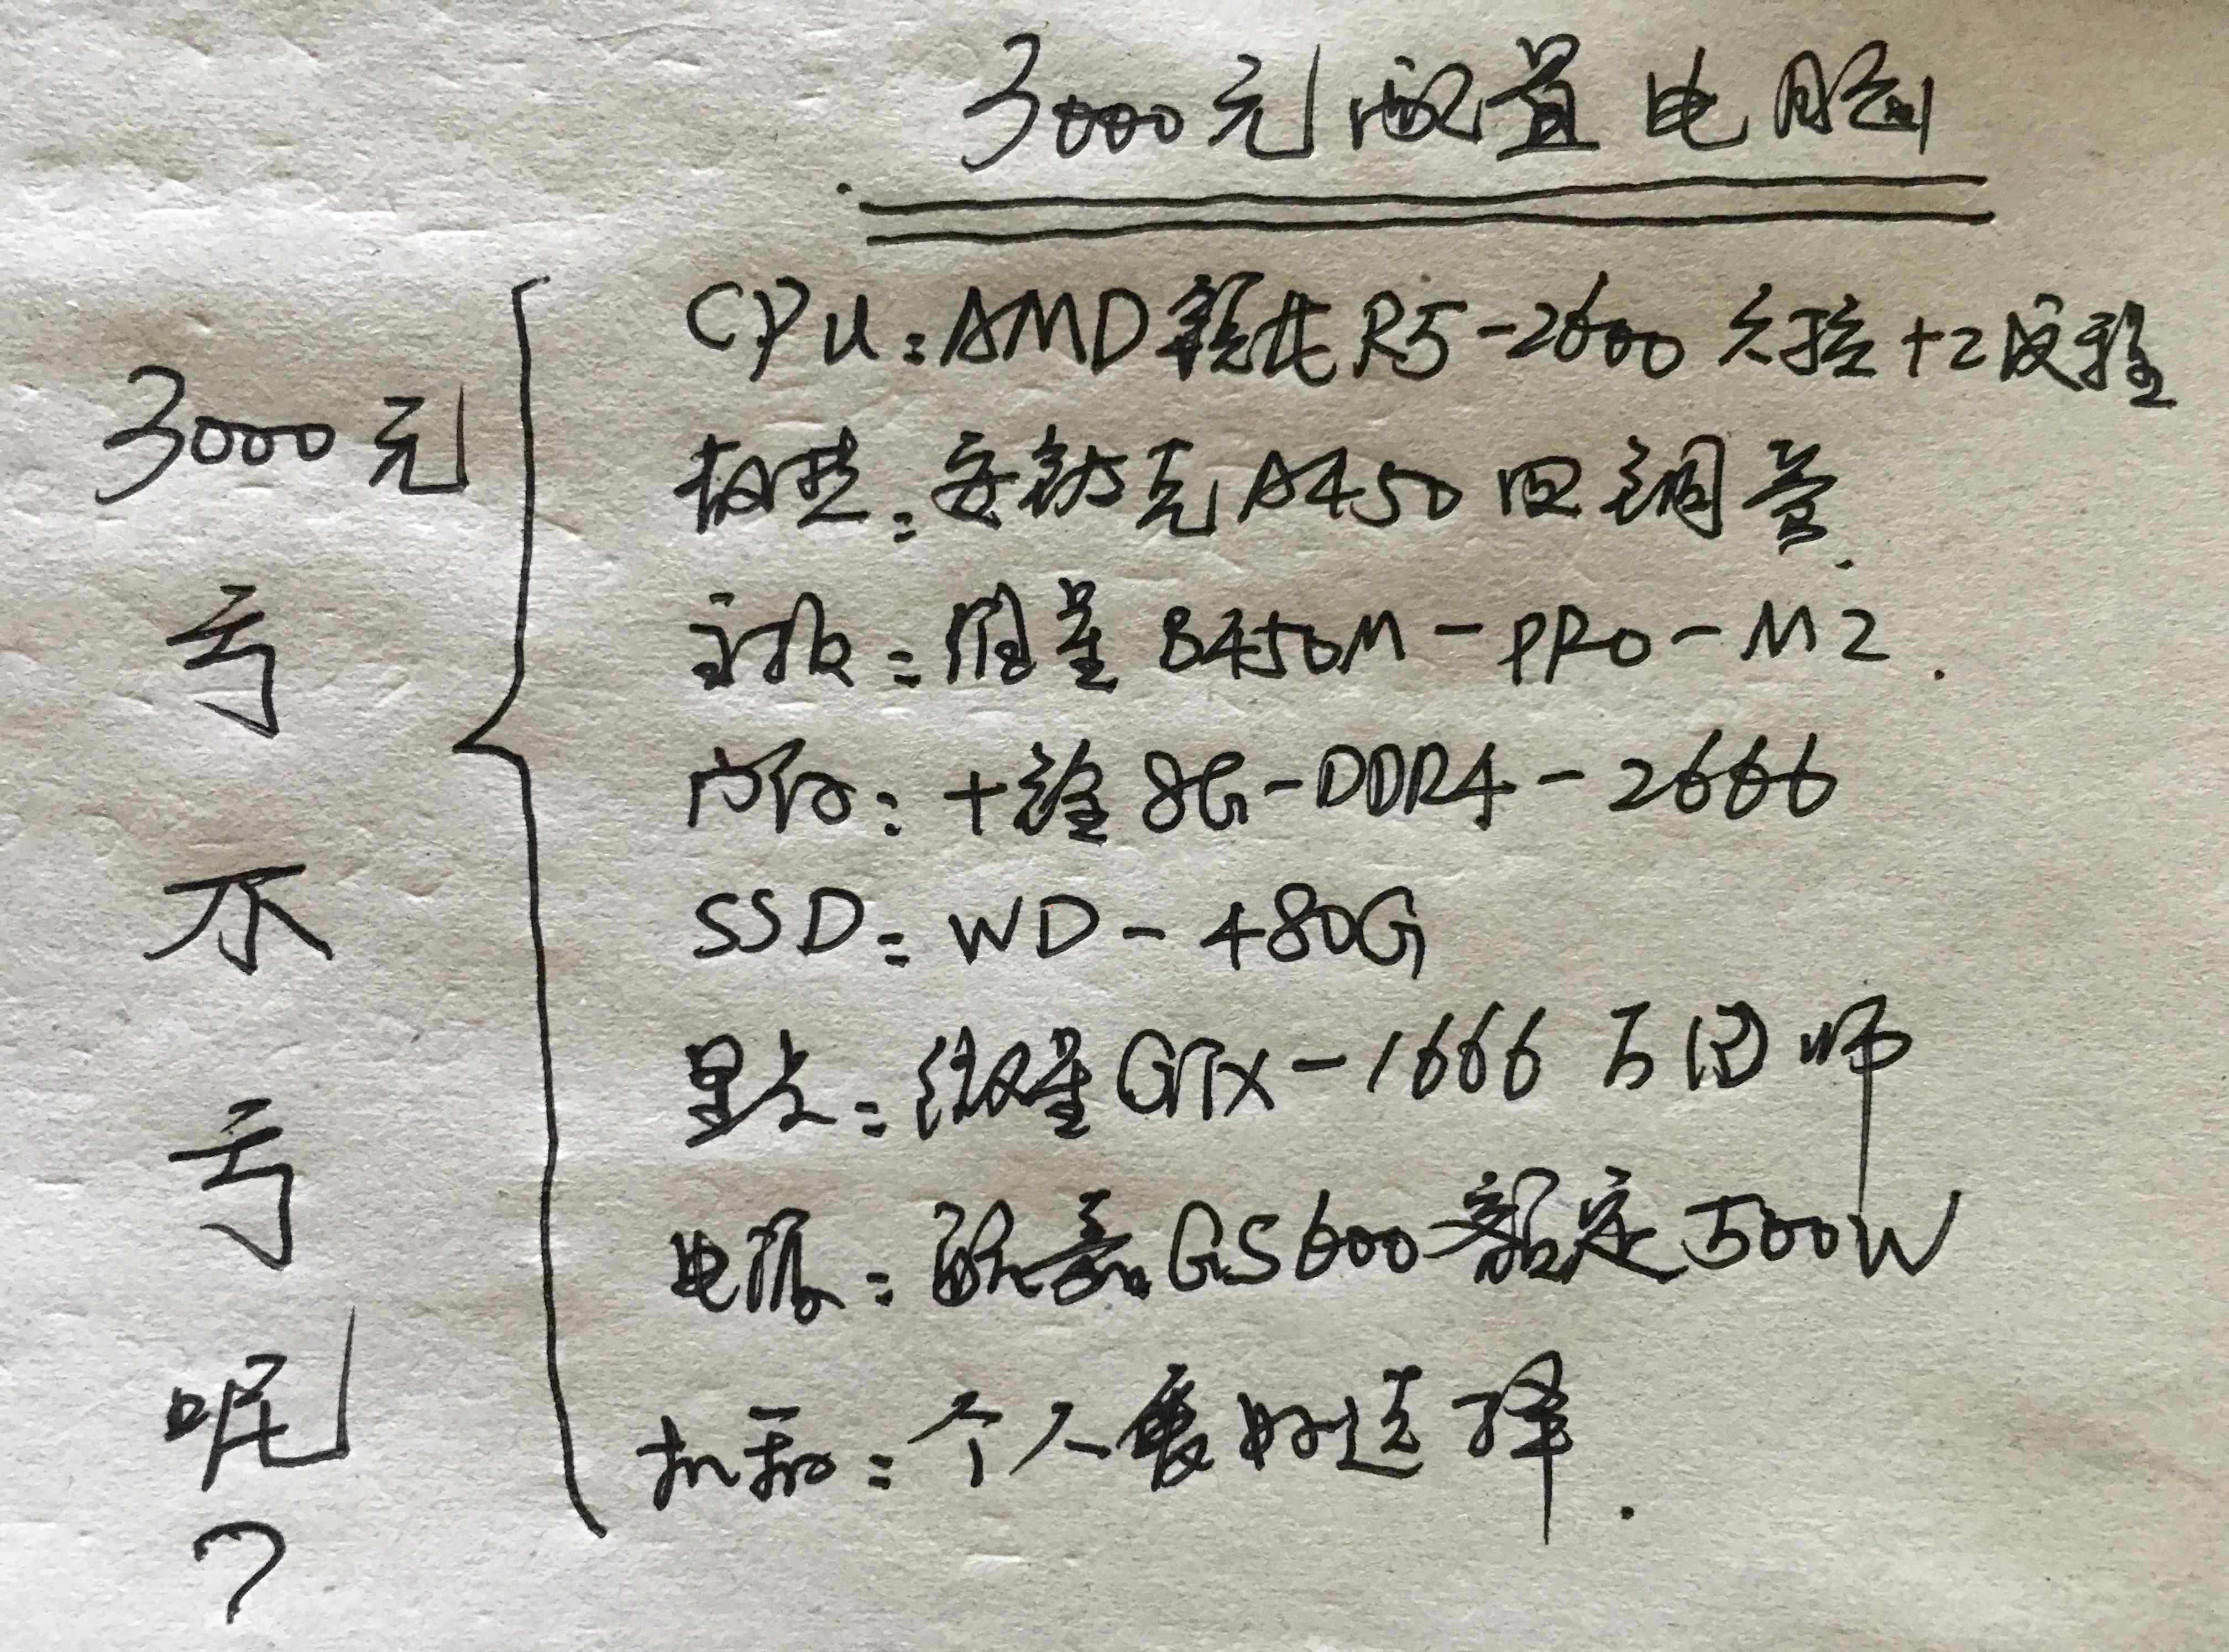 3000元配置电脑
3000元
亏
不
亏
呢
?
CPU:AMD锐龙R5-2600六核+2线程
散热:安钛克A450四铜管.
主板:微星B450M-PRO-M2.
内存:十铨8G-DDR4-2666
SSD:WD-480G
显卡:微星GTX-1666万图师
电源:航嘉GS600额定500W
机箱:个人喜好选择.